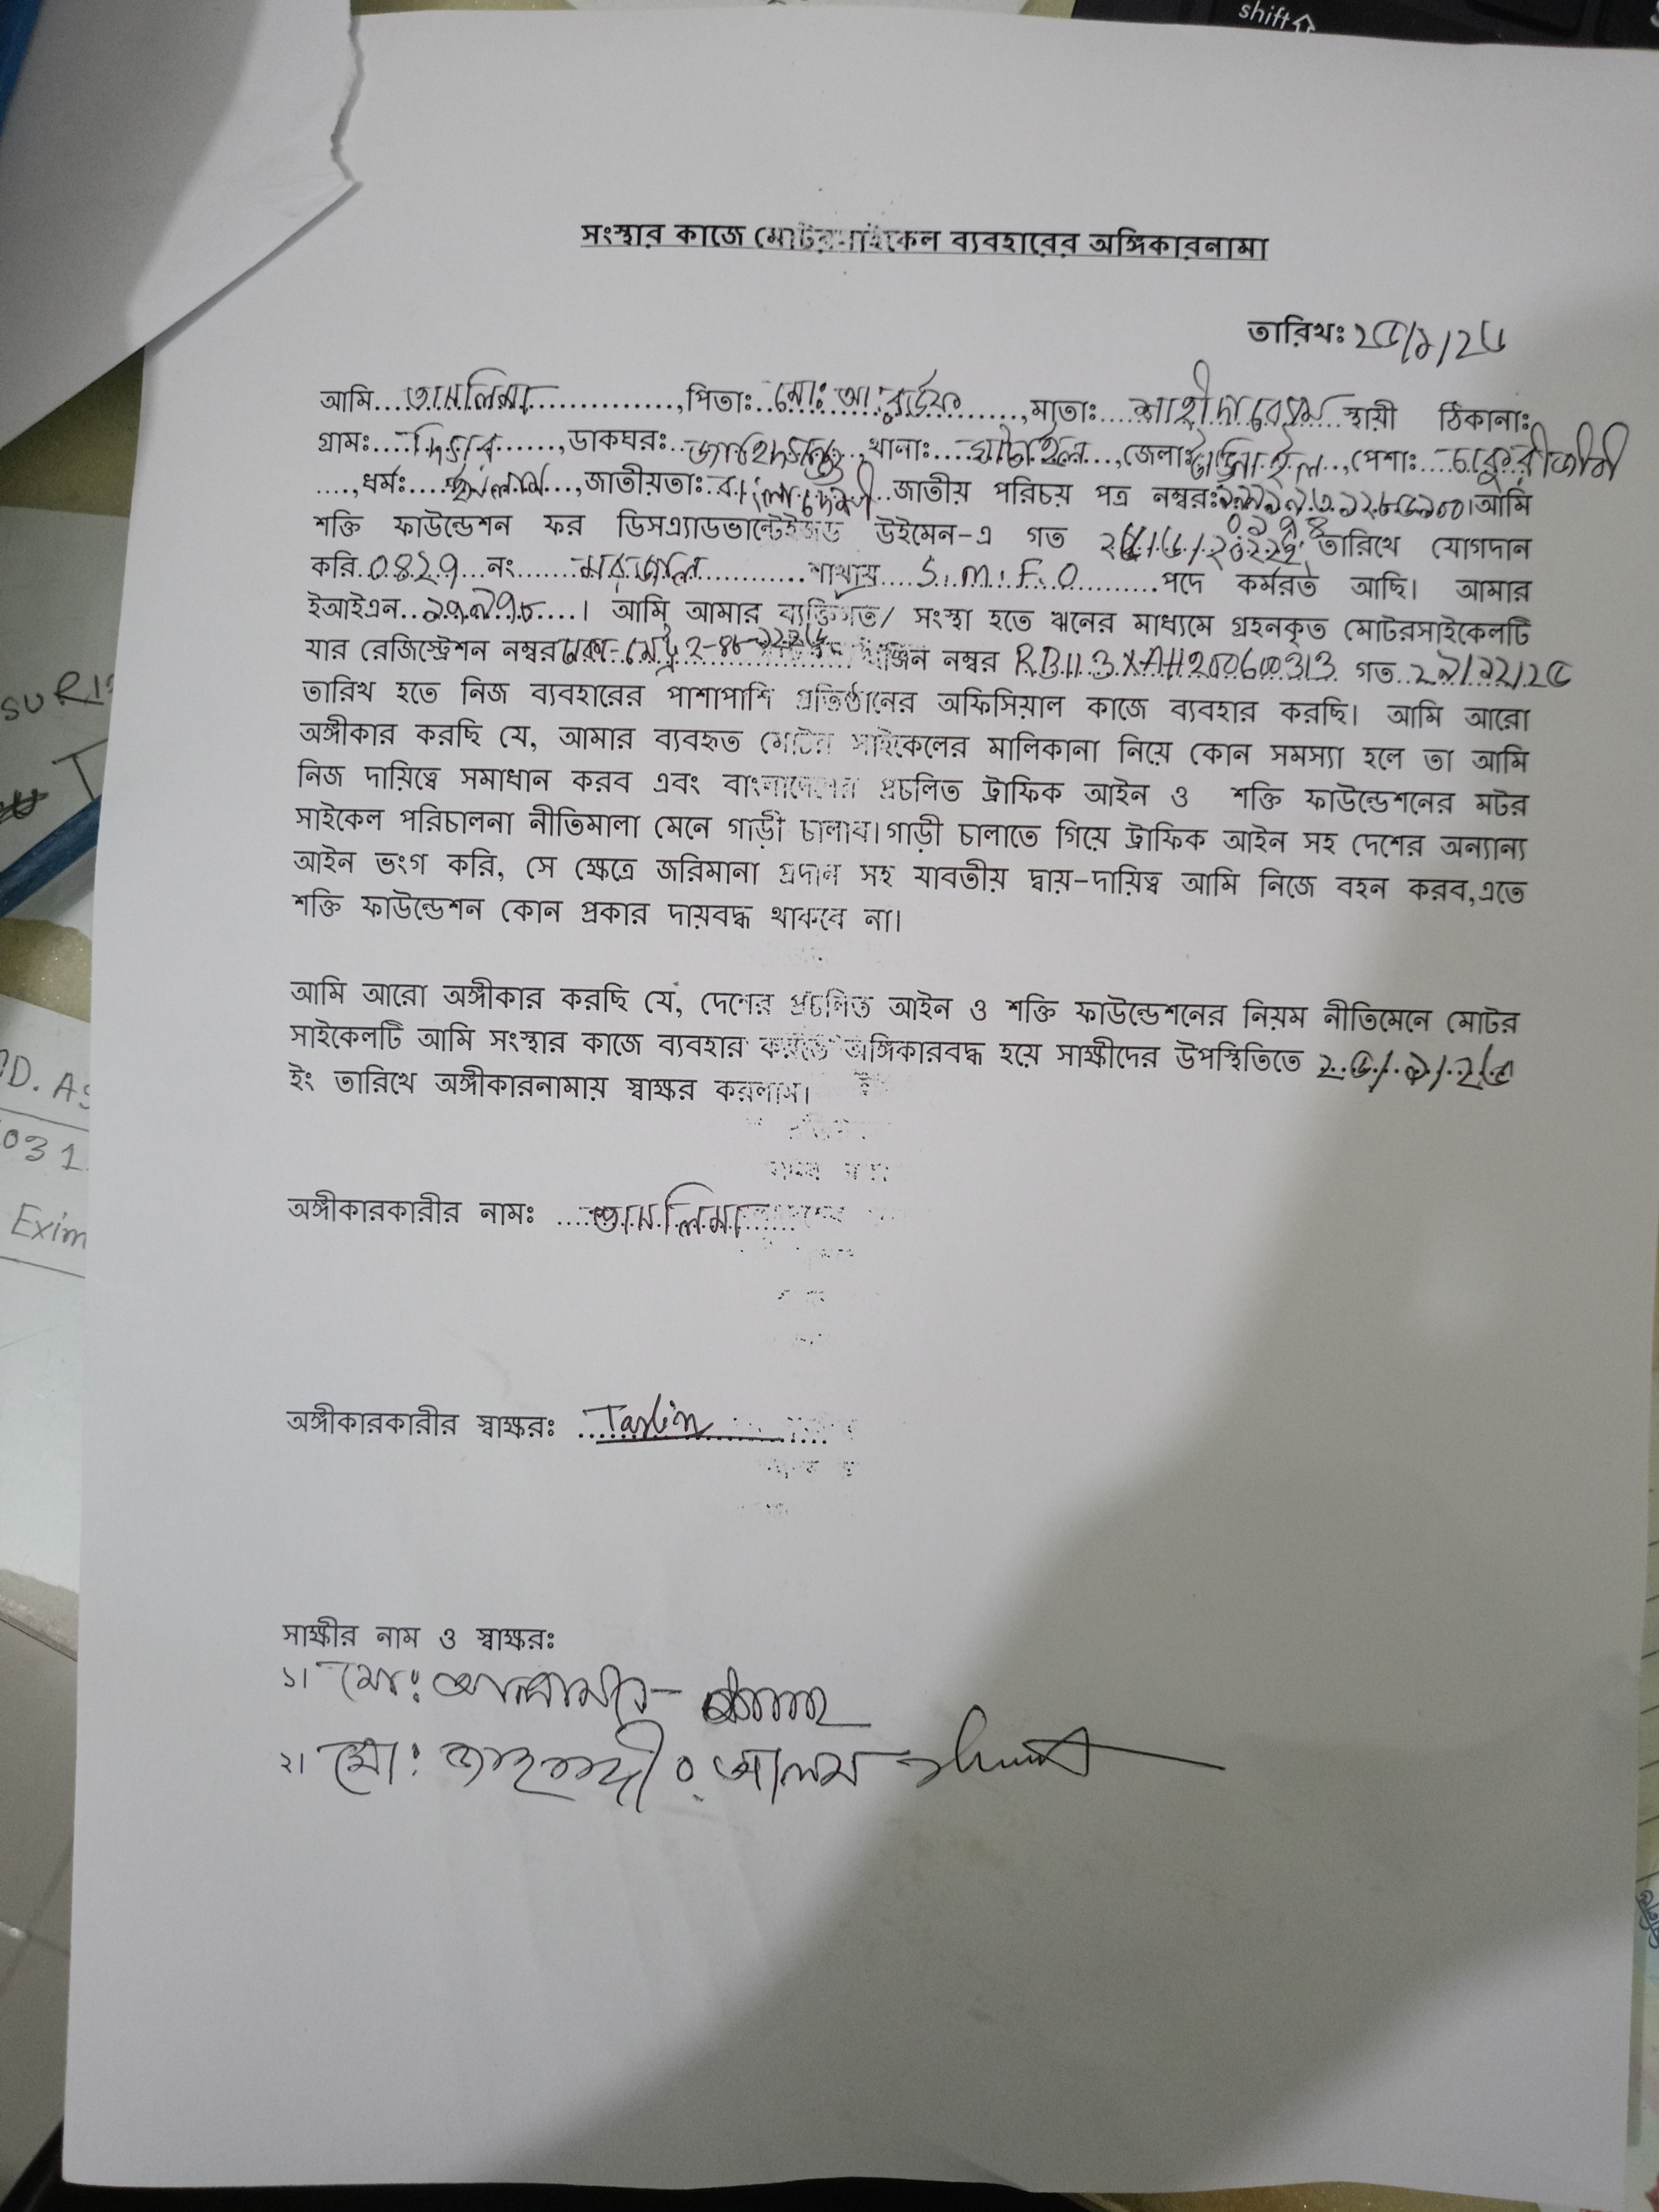 shift⇧
সংস্থার কাজে মোটরসাইকেল ব্যবহারের অঙ্গিকারনামা
তারিখঃ ২৫/১/২৫
আমি....তাসলিমা..............,পিতাঃ..মোঃ আঃ রউফ......,মাতাঃ...শাহীদা বেগম স্থায়ী ঠিকানাঃ
গ্রামঃ....দিগর......,ডাকঘরঃ..........,থানাঃ....ঘাটাইল...,জেলাঃ টাঙ্গাইল..,পেশাঃ...চাকুরীজীবী
....,ধর্মঃ....ইসলাম...,জাতীয়তাঃ.বাংলাদেশী..জাতীয় পরিচয় পত্র নম্বরঃ আমি
শক্তি ফাউন্ডেশন ফর ডিসএ্যাডভান্টেইজড উইমেন-এ গত তারিখে যোগদান
করি.0৪২৭...নং.......মরজাল............শাখায়....S.M.F.O..........পদে কর্মরত আছি। আমার
ইআইএন.........। আমি আমার ব্যক্তিগত/ সংস্থা হতে ঋনের মাধ্যমে গ্রহনকৃত মোটরসাইকেলটি
যার রেজিস্ট্রেশন নম্বর ঢাকা-মেট্রো ইঞ্জিন নম্বর RB113XAH200600313 গত..২৭/১২/২৫
তারিখ হতে নিজ ব্যবহারের পাশাপাশি প্রতিষ্ঠানের অফিসিয়াল কাজে ব্যবহার করছি। আমি আরো
অঙ্গীকার করছি যে, আমার ব্যবহৃত মোটর সাইকেলের মালিকানা নিয়ে কোন সমস্যা হলে তা আমি
নিজ দায়িত্বে সমাধান করব এবং বাংলাদেশের প্রচলিত ট্রাফিক আইন ও শক্তি ফাউন্ডেশনের মটর
সাইকেল পরিচালনা নীতিমালা মেনে গাড়ী চালাব।গাড়ী চালাতে গিয়ে ট্রাফিক আইন সহ দেশের অন্যান্য
আইন ভংগ করি, সে ক্ষেত্রে জরিমানা প্রদান সহ যাবতীয় দ্বায়-দায়িত্ব আমি নিজে বহন করব,এতে
শক্তি ফাউন্ডেশন কোন প্রকার দায়বদ্ধ থাকবে না।
আমি আরো অঙ্গীকার করছি যে, দেশের প্রচলিত আইন ও শক্তি ফাউন্ডেশনের নিয়ম নীতিমেনে মোটর
সাইকেলটি আমি সংস্থার কাজে ব্যবহার করতে অঙ্গিকারবদ্ধ হয়ে সাক্ষীদের উপস্থিতিতে ২৫/১/২৫
ইং তারিখে অঙ্গীকারনামায় স্বাক্ষর করলাম।
অঙ্গীকারকারীর নামঃ ....তাসলিমা......
অঙ্গীকারকারীর স্বাক্ষরঃ ..Taslim..........
সাক্ষীর নাম ও স্বাক্ষরঃ
১। মোঃ আলামীন-
২। মোঃ জাহাঙ্গীর আলম
MD. AS
031
Exim